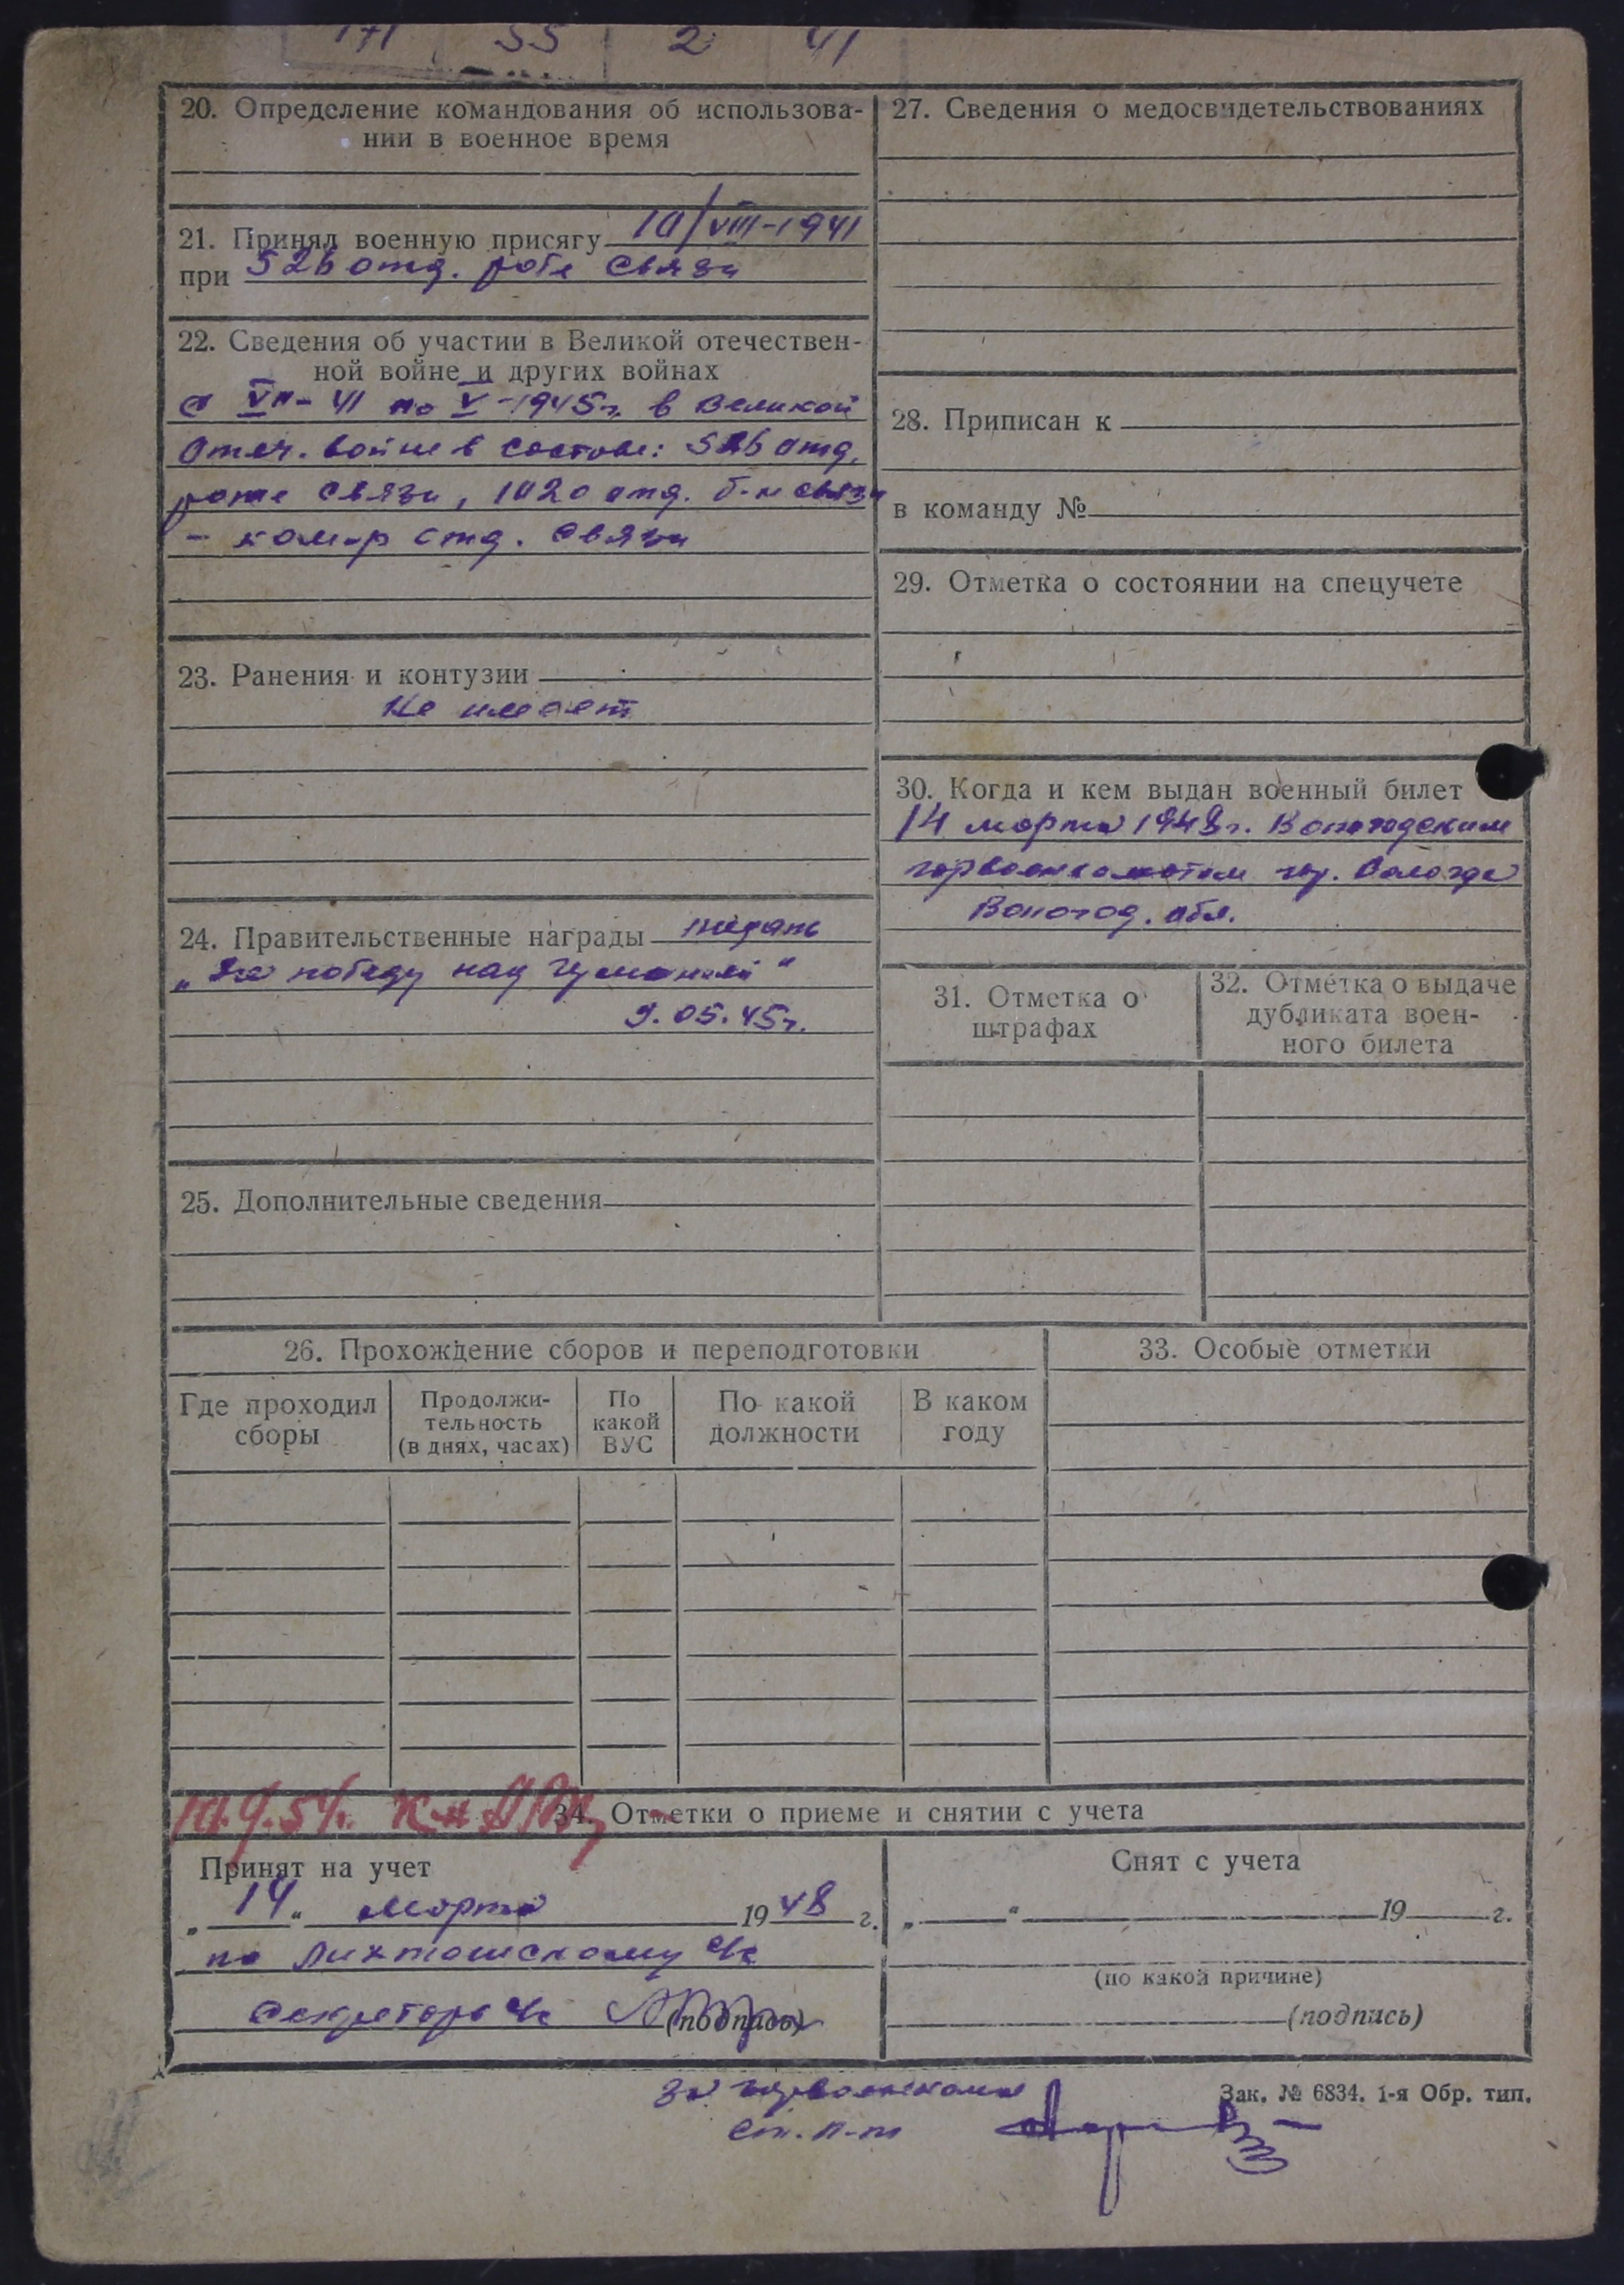 171 55 2 41
20. Определение командования об использова-
нии в военное время
21. Принял военную присягу 10/VIII-1941
при 526 отд. роте связи
22. Сведения об участии в Великой отечествен-
ной войне и других войнах
с VII-41 по V-1945г. в Великой
Отеч. войне в составе: 526 отд.
роте связи, 1020 отд. б-н связи
- ком-р отд. связи
23. Ранения и контузии
Не имеет
24. Правительственные награды медаль
„За победу над Германией"
9.05.45г.
25. Дополнительные сведения
26. Прохождение сборов и переподготовки
Где проходил
сборы
Продолжи-
тельность
(в днях, часах)
По
какой
ВУС
По какой
должности
В каком
году
27. Сведения о медосвидетельствованиях
28. Приписан к
в команду №
29. Отметка о состоянии на спецучете
30. Когда и кем выдан военный билет
14 марта 1948г. Вологодским
горвоенкоматом гор. Вологда
Вологод. обл.
31. Отметка о
штрафах
32. Отметка о выдаче
дубликата воен-
ного билета
33. Особые отметки
34. Отметки о приеме и снятии с учета
Принят на учет
„14" Марта 1948 г.
по Лихтошскому с/с
Секретарь с/с (подпись)
Снят с учета
„ " 19 г.
(по какой причине)
(подпись)
За горвоенкома
ст. л-т
Зак. № 6834. 1-я Обр. тип.